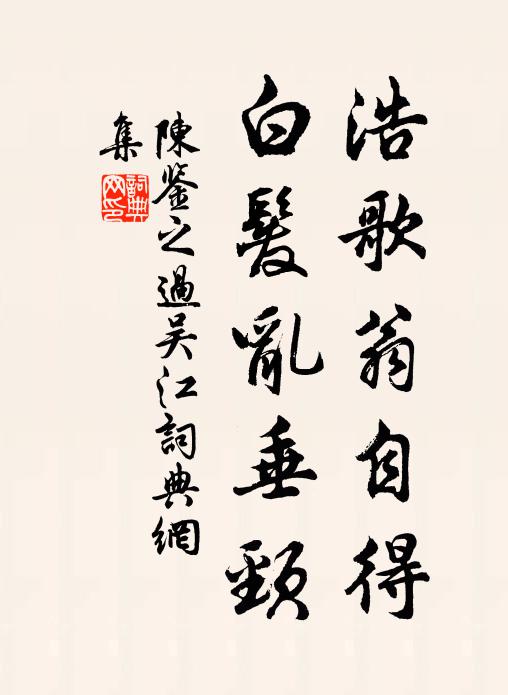 浩歌翁自得
白髮亂垂頸
陳鉴之過吴江詞典網
集
詞典
网印